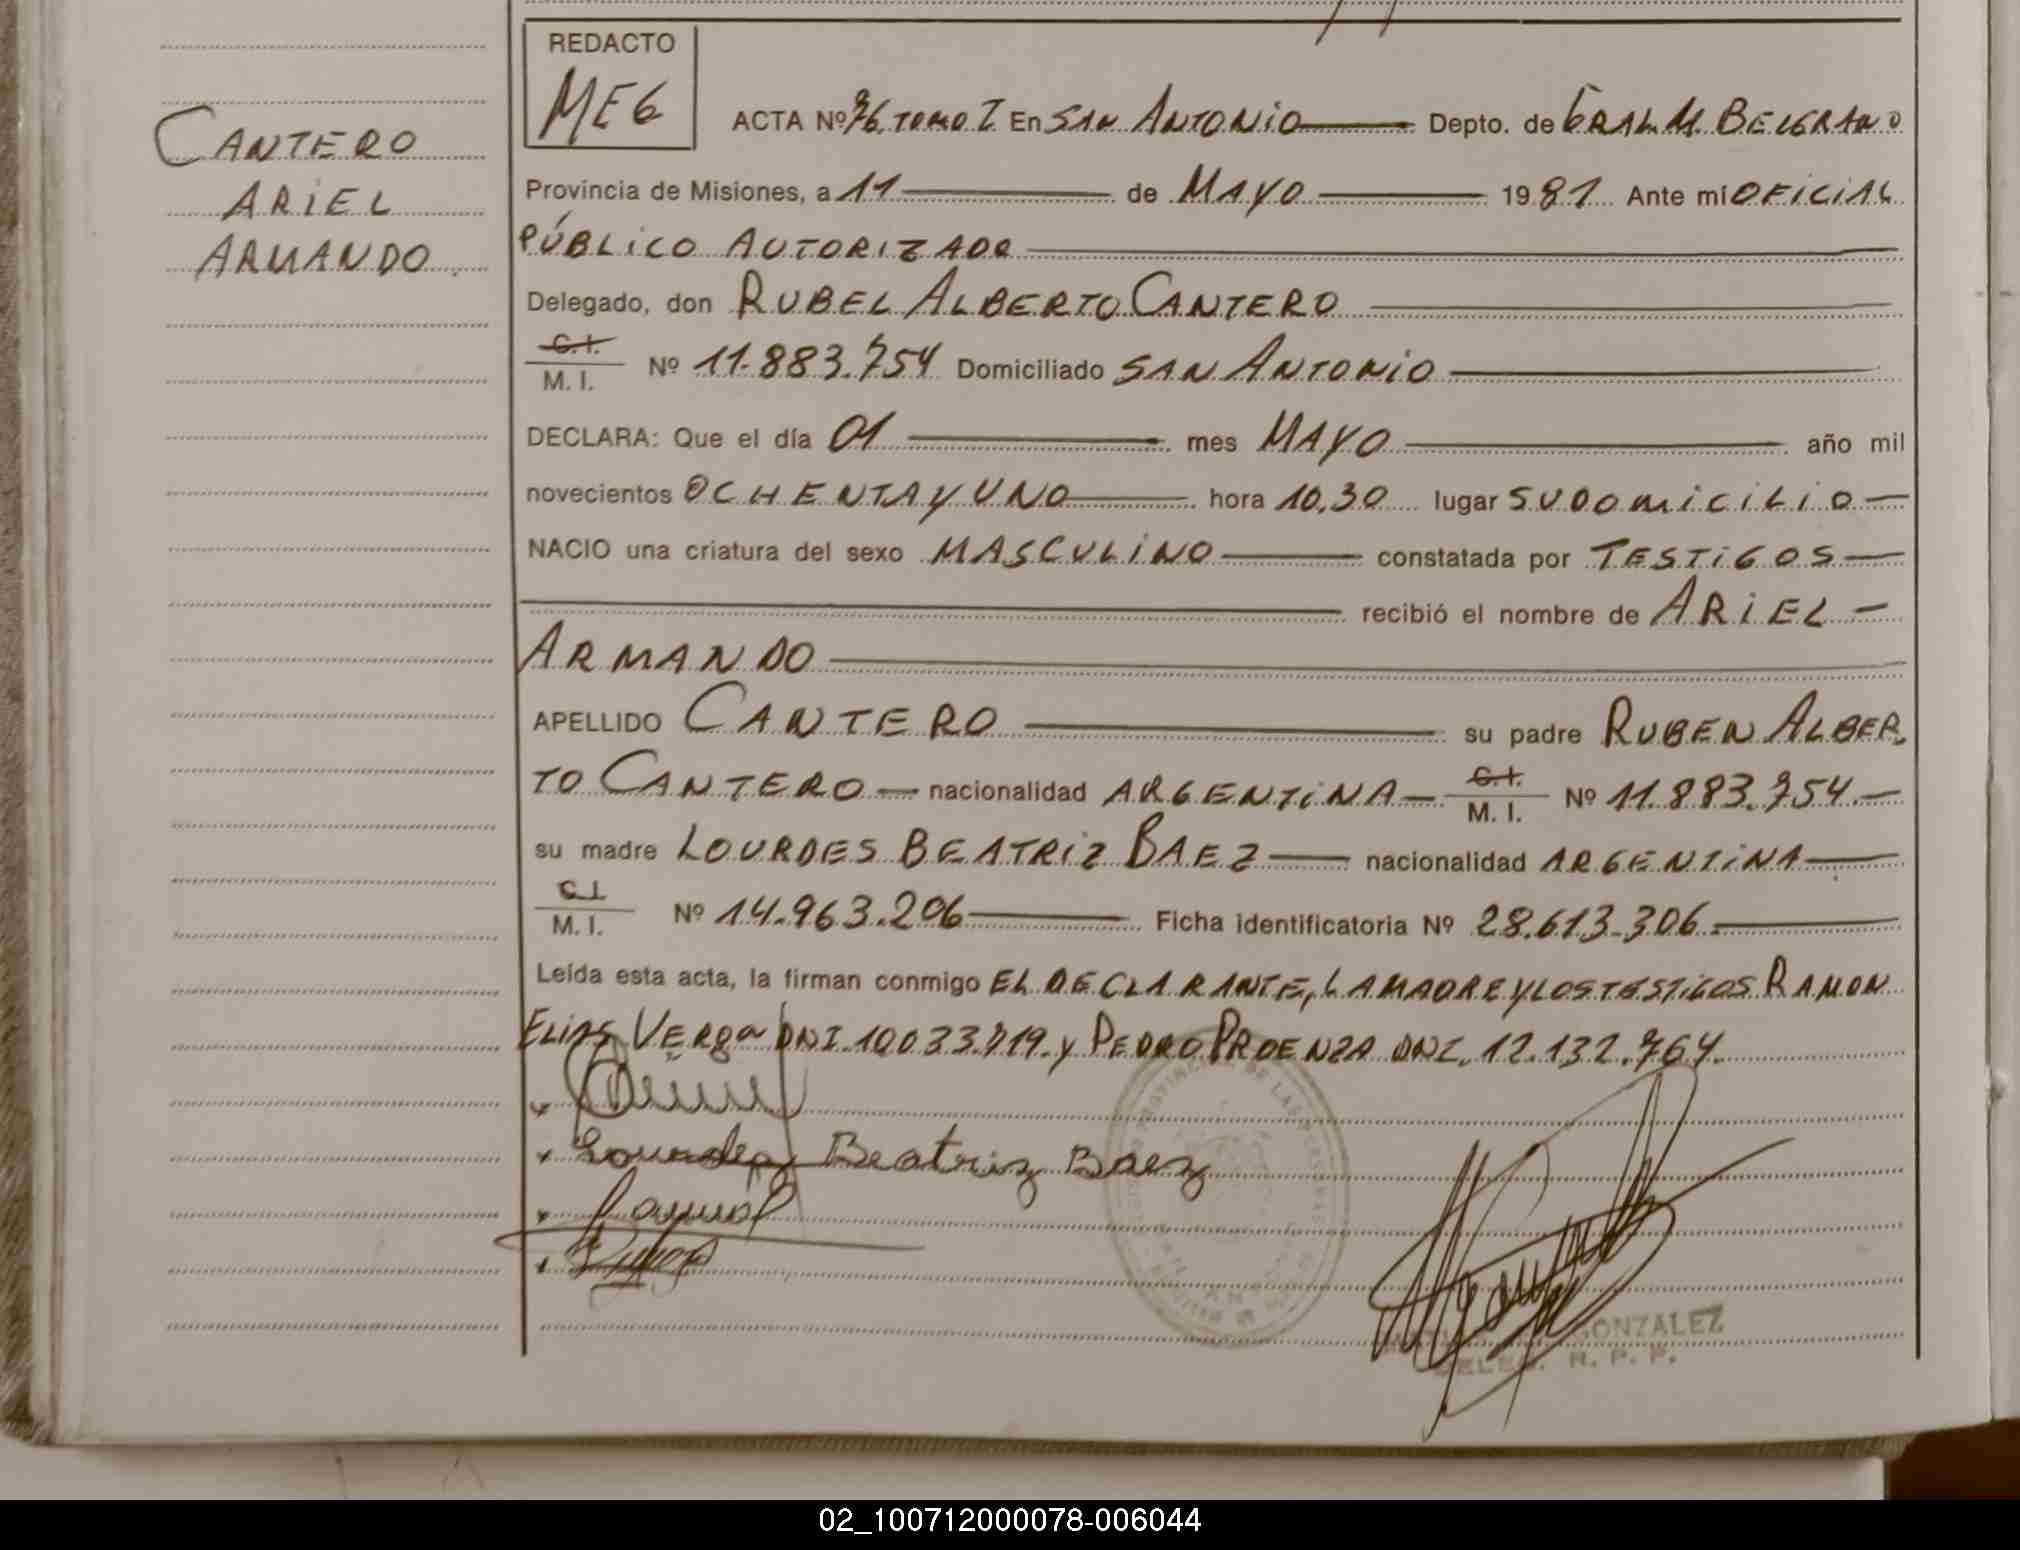 CANTERO
ARIEL
ARMANDO
REDACTO
MEG
ACTA Nº 76 TOMO I En SAN ANTONIO Depto. de GRAL M. BELGRANO
Provincia de Misiones, a 11 de MAYO 1981 Ante mi OFICIAL
PÚBLICO AUTORIZADO
Delegado, don RUBEL ALBERTO CANTERO
C.I.
M. I. Nº 11.883.754 Domiciliado SAN ANTONIO
DECLARA: Que el día 01 mes MAYO año mil
novecientos OCHENTA Y UNO hora 10,30 lugar SU DOMICILIO
NACIO una criatura del sexo MASCULINO constatada por TESTIGOS
recibió el nombre de ARIEL
ARMANDO
APELLIDO CANTERO su padre RUBEN ALBER
TO CANTERO nacionalidad ARGENTINA C.I. M. I. Nº 11.883.754
su madre LOURDES BEATRIZ BAEZ nacionalidad ARGENTINA
C.I.
M. I. Nº 14.963.206 Ficha identificatoria Nº 28.613.306
Leída esta acta, la firman conmigo EL DECLARANTE, LA MADRE Y LOS TESTIGOS RAMON
ELIAS VERGA DNI 10033.719. y PEDRO PROENZA DNI. 12.132.764.
Lourdes Beatriz Baez
GONZALEZ
DELEG. R. P. P.
02_100712000078-006044